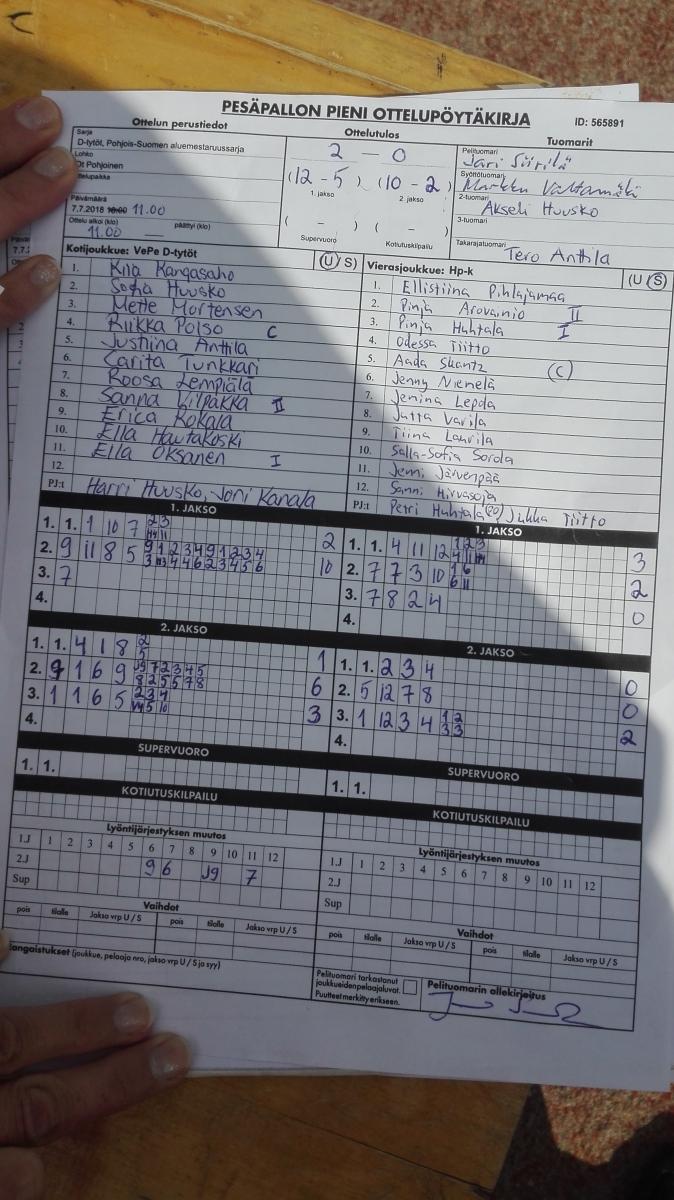 PESÄPALLON PIENI OTTELUPÖYTÄKIRJA ID: 565891
Ottelun perustiedot Ottelutulos Tuomarit
Sarja
D-tytöt, Pohjois-Suomen aluemestaruussarja
Lohko
Dt Pohjoinen
Ottelupaikka
Päivämäärä
7.7.2018 18:00 11.00
Ottelu alkoi (klo) päättyi (klo)
11.00 —
2 — 0
(12 - 5) (10 - 2)
1. jakso 2. jakso
( - ) ( - )
Supervuoro Kotiutuskilpailu
Pelituomari
Jari Siirilä
Syöttötuomari
Markku Valtamäki
2-tuomari
Akseli Huusko
3-tuomari
Takarajatuomari
Tero Anttila
Kotijoukkue: VePe D-tytöt (U / S)
1. Kiia Kangasaho
2. Sofia Huusko
3. Mette Mortensen
4. Riikka Polso C
5. Justiina Anttila
6. Carita Tunkkari
7. Roosa Lempiälä
8. Sanna Vilpakka II
9. Erica Kokala
10. Ella Hautakoski
11. Ella Oksanen I
12.
PJ:t Harri Huusko, Joni Kanala
Vierasjoukkue: Hp-k (U / S)
1. Ellistiina Pihlajamaa
2. Pinja Arovainio II
3. Pinja Huhtala I
4. Odessa Tiitto
5. Aada Skantz (C)
6. Jenny Niemelä
7. Jemina Lepola
8. Jutta Varila
9. Tiina Laurila
10. Salla-Sofia Sorola
11. Jenni Järvenpää
12. Sanni Hirvasoja
PJ:t Petri Huhtala, Jukka Tiitto
1. JAKSO
1. 1. 1 10 7 2
2. 9 11 8 5 10
3. 7
4.
1. JAKSO
1. 1. 4 11 12 3
2. 7 7 3 10 2
3. 7 8 2 4 0
4.
2. JAKSO
1. 1. 4 1 8 1
2. 9 1 6 9 6
3. 1 1 6 5 3
4.
2. JAKSO
1. 1. 2 3 4 0
2. 5 12 7 8 0
3. 1 12 3 4 2
4.
SUPERVUORO
1. 1.
SUPERVUORO
1. 1.
KOTIUTUSKILPAILU
KOTIUTUSKILPAILU
Lyöntijärjestyksen muutos
1.J 1 2 3 4 5 6 7 8 9 10 11 12
2.J 9 6 J9 7
Sup
Lyöntijärjestyksen muutos
1.J 1 2 3 4 5 6 7 8 9 10 11 12
2.J
Sup
Vaihdot
pois tilalle Jakso vrp U / S pois tilalle Jakso vrp U / S
Vaihdot
pois tilalle Jakso vrp U / S pois tilalle Jakso vrp U / S
Rangaistukset (joukkue, pelaaja nro, jakso vrp U / S ja syy)
Pelituomari tarkastanut
joukkueiden pelaajaluvat.
Puutteet merkitty erikseen.
Pelituomarin allekirjoitus